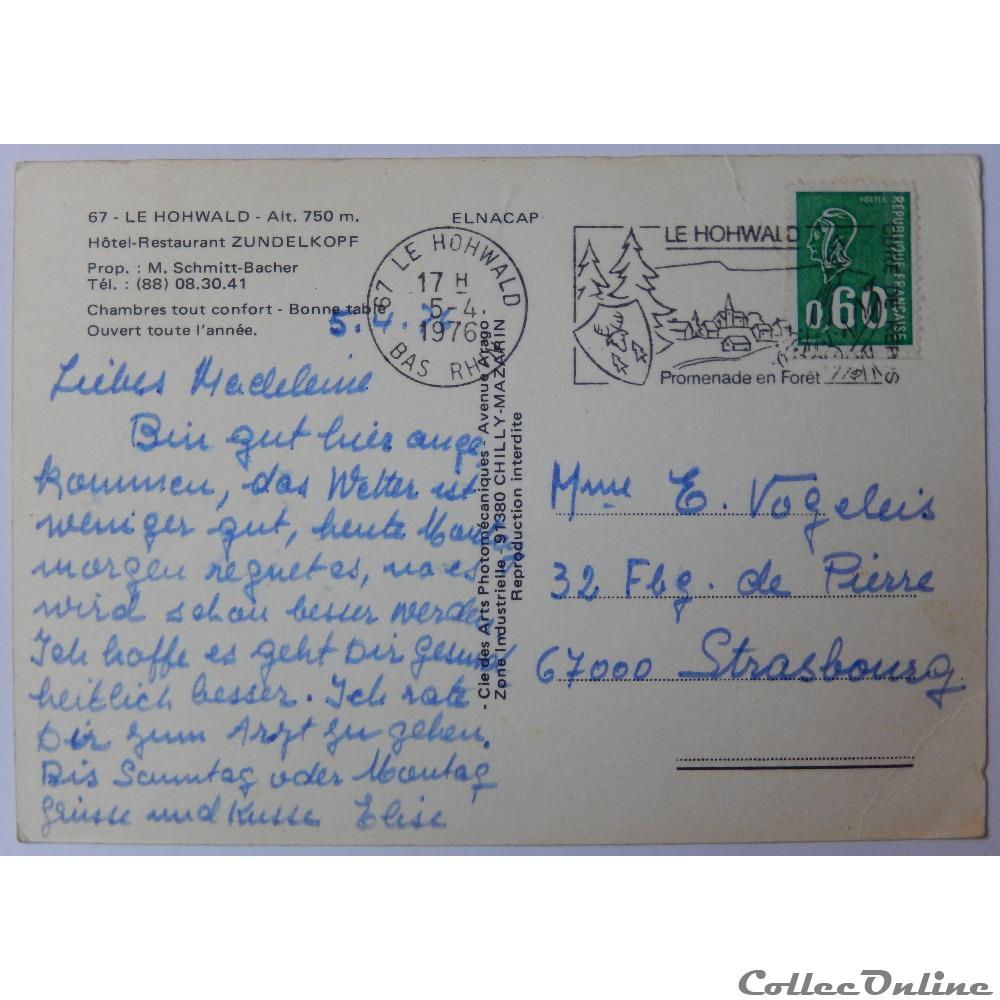 67 - LE HOHWALD - Alt. 750 m.
Hôtel-Restaurant ZUNDELKOPF
Prop. : M. Schmitt-Bacher
Tél. : (88) 08.30.41
Chambres tout confort - Bonne table
Ouvert toute l'année.
ELNACAP
67 LE HOHWALD
17 H
5-4-
1976
BAS RHIN
LE HOHWALD
Promenade en Forêt
POSTES
RÉPUBLIQUE FRANÇAISE
0,60
- Cie des Arts Photomécaniques - Avenue Arago
Zone Industrielle - 91380 CHILLY-MAZARIN
Reproduction interdite
5.4.
Liebes Madeleine
Bin gut hier ange
kommen, das Wetter ist
weniger gut, heute
morgen regnet es, na es
wird schon besser werden
Ich hoffe es geht Dir Gesund
heitlich besser. Ich rate
Dir zum Arzt zu gehen.
Bis Sonntag oder Montag
Grüsse und Küsse Elise
Mme E. Vogeleis
32 Fbg. de Pierre
67000 Strasbourg
CollecOnline